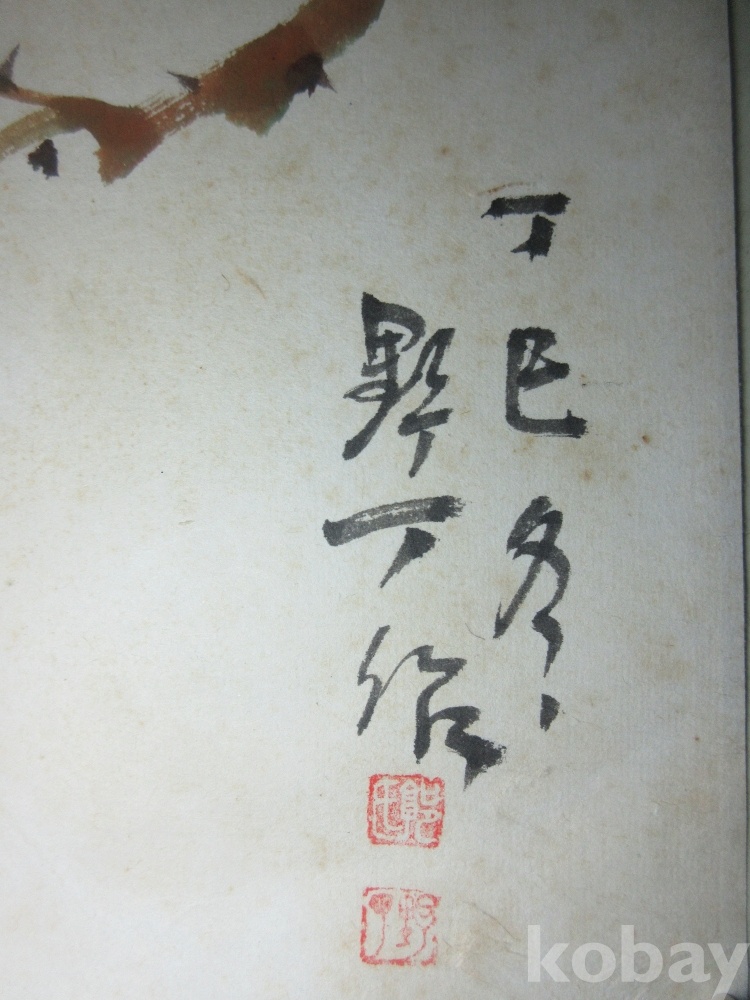 丁巳冬
野丁作
kobay